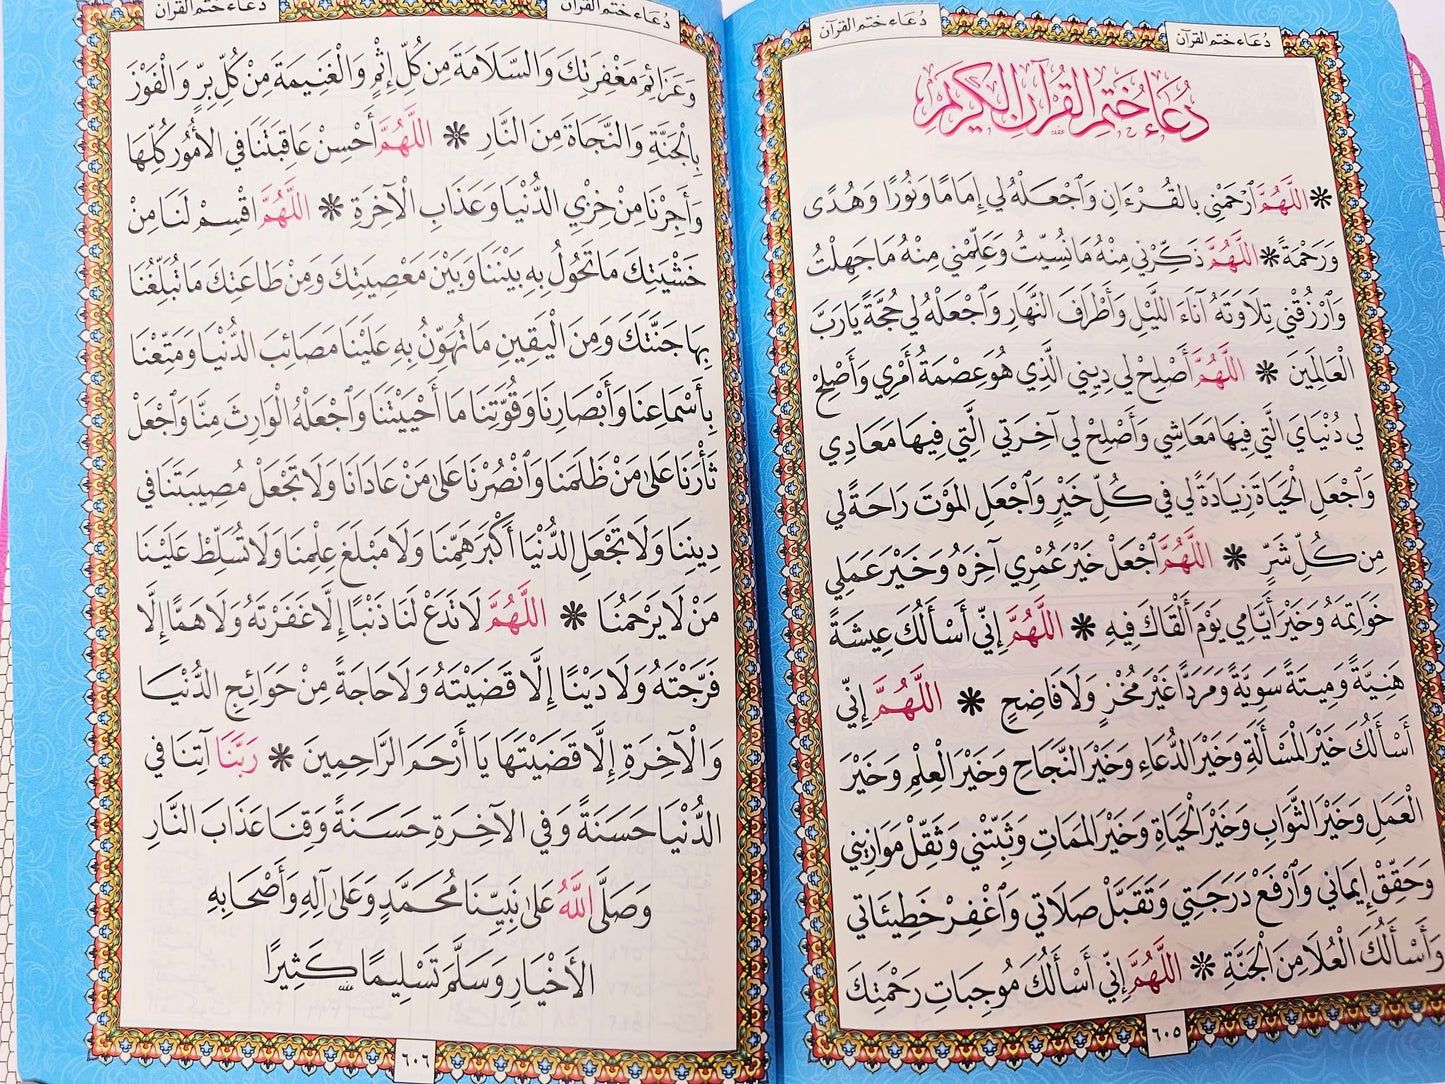 دُعَاء ختم القرآن
دُعَاء ختم القرآن
دُعَاءُ خَتْمِ القُرْآنِ الكَرِيمِ
❋ اللَّهُمَّ ٱرْحَمْنِي بالقُرْءَانِ وَٱجْعَلْهُ لِي إِمَامًا وَنُورًا وَهُدًى
وَرَحْمَةً ❋ اللَّهُمَّ ذَكِّرْنِي مِنْهُ مَا نُسِّيتُ وَعَلِّمْنِي مِنْهُ مَا جَهِلْتُ
وَٱرْزُقْنِي تِلَاوَتَهُ آنَاءَ اللَّيْلِ وَأَطْرَافَ النَّهَارِ وَٱجْعَلْهُ لِي حُجَّةً يَارَبَّ
الْعَالَمِينَ ❋ اللَّهُمَّ أَصْلِحْ لِي دِينِي الَّذِي هُوَ عِصْمَةُ أَمْرِي وَأَصْلِحْ
لِي دُنْيَايَ الَّتِي فِيهَا مَعَاشِي وَأَصْلِحْ لِي آخِرَتِي الَّتِي فِيهَا مَعَادِي
وَٱجْعَلِ الْحَيَاةَ زِيَادَةً لِي فِي كُلِّ خَيْرٍ وَٱجْعَلِ الْمَوْتَ رَاحَةً لِي
مِن كُلِّ شَرٍّ ❋ اللَّهُمَّ ٱجْعَلْ خَيْرَ عُمْرِي آخِرَهُ وَخَيْرَ عَمَلِي
خَوَاتِمَهُ وَخَيْرَ أَيَّامِي يَوْمَ أَلْقَاكَ فِيهِ ❋ اللَّهُمَّ إِنِّي أَسْأَلُكَ عِيشَةً
هَنِيَّةً وَمِيتَةً سَوِيَّةً وَمَرَدًّا غَيْرَ مُخْزٍ وَلَا فَاضِحٍ ❋ اللَّهُمَّ إِنِّي
أَسْأَلُكَ خَيْرَ الْمَسْأَلَةِ وَخَيْرَ الدُّعَاءِ وَخَيْرَ النَّجَاحِ وَخَيْرَ الْعِلْمِ وَخَيْرَ
الْعَمَلِ وَخَيْرَ الثَّوَابِ وَخَيْرَ الْحَيَاةِ وَخَيْرَ الْمَمَاتِ وَثَبِّتْنِي وَثَقِّلْ مَوَازِينِي
وَحَقِّقْ إِيمَانِي وَٱرْفَعْ دَرَجَتِي وَتَقَبَّلْ صَلَاتِي وَٱغْفِرْ خَطِيئَاتِي
وَأَسْأَلُكَ الْعُلَا مِنَ الْجَنَّةِ ❋ اللَّهُمَّ إِنِّي أَسْأَلُكَ مُوجِبَاتِ رَحْمَتِكَ
٦٠٥
دُعَاء ختم القرآن
دُعَاء ختم القرآن
وَعَزَائِمَ مَغْفِرَتِكَ وَالسَّلَامَةَ مِن كُلِّ إِثْمٍ وَالْغَنِيمَةَ مِنْ كُلِّ بِرٍّ وَالْفَوْزَ
بِالْجَنَّةِ وَالنَّجَاةَ مِنَ النَّارِ ❋ اللَّهُمَّ أَحْسِنْ عَاقِبَتَنَا فِي الأُمُورِ كُلِّهَا
وَأَجِرْنَا مِنْ خِزْيِ الدُّنْيَا وَعَذَابِ الْآخِرَةِ ❋ اللَّهُمَّ اقْسِمْ لَنَا مِنْ
خَشْيَتِكَ مَا تَحُولُ بِهِ بَيْنَنَا وَبَيْنَ مَعْصِيَتِكَ وَمِنْ طَاعَتِكَ مَا تُبَلِّغُنَا
بِهَا جَنَّتَكَ وَمِنَ الْيَقِينِ مَا تُهَوِّنُ بِهِ عَلَيْنَا مَصَائِبَ الدُّنْيَا وَمَتِّعْنَا
بِأَسْمَاعِنَا وَأَبْصَارِنَا وَقُوَّتِنَا مَا أَحْيَيْتَنَا وَٱجْعَلْهُ الْوَارِثَ مِنَّا وَٱجْعَلْ
ثَأْرَنَا عَلَى مَنْ ظَلَمَنَا وَٱنْصُرْنَا عَلَى مَنْ عَادَانَا وَلَا تَجْعَلْ مُصِيبَتَنَا فِي
دِينِنَا وَلَا تَجْعَلِ الدُّنْيَا أَكْبَرَ هَمِّنَا وَلَا مَبْلَغَ عِلْمِنَا وَلَا تُسَلِّطْ عَلَيْنَا
مَنْ لَا يَرْحَمُنَا ❋ اللَّهُمَّ لَا تَدَعْ لَنَا ذَنْبًا إِلَّا غَفَرْتَهُ وَلَا هَمًّا إِلَّا
فَرَّجْتَهُ وَلَا دَيْنًا إِلَّا قَضَيْتَهُ وَلَا حَاجَةً مِنْ حَوَائِجِ الدُّنْيَا
وَالْآخِرَةِ إِلَّا قَضَيْتَهَا يَا أَرْحَمَ الرَّاحِمِينَ ❋ رَبَّنَا آتِنَا فِي
الدُّنْيَا حَسَنَةً وَفِي الآخِرَةِ حَسَنَةً وَقِنَا عَذَابَ النَّارِ
وَصَلَّى اللَّهُ عَلَى نَبِيِّنَا مُحَمَّدٍ وَعَلَى آلِهِ وَأَصْحَابِهِ
الأَخْيَارِ وَسَلَّمَ تَسْلِيمًا كَثِيرًا
٦٠٦